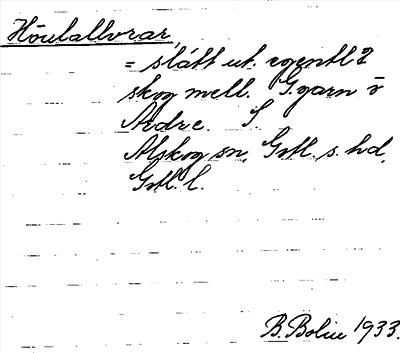 Höulallvrar,
= slätt ut. egentl
skog mell. G.garn o
Ardre. S
Alskog sn, Gotl. s. hd,
Gotl. l.
B. Bolin 1933.